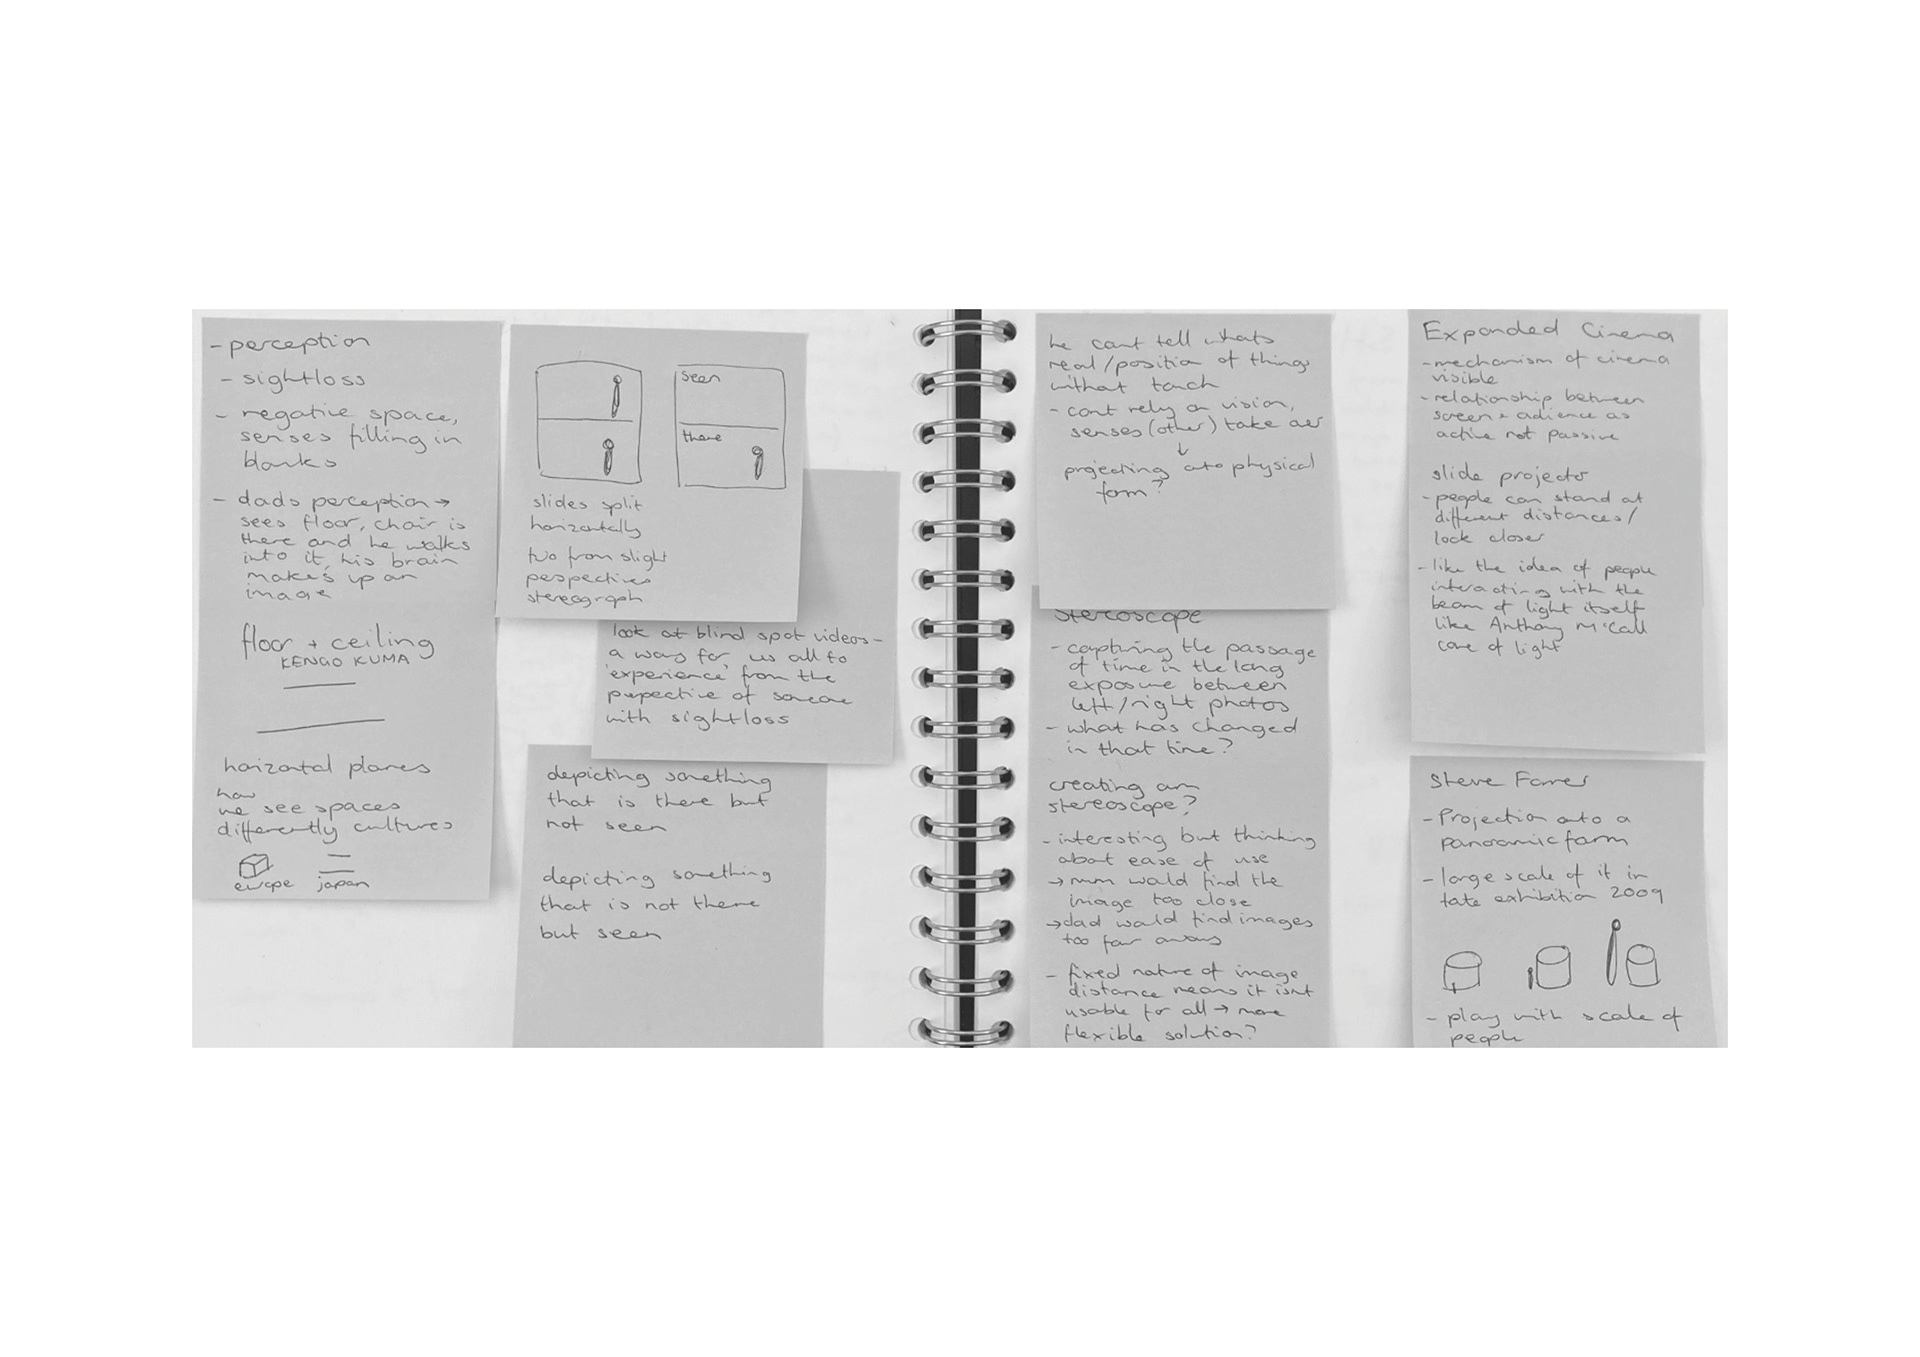 - perception
- sightloss
- negative space,
senses filling in
blanks
- dads perception →
sees floor, chair is
there and he walks
into it, his brain
makes up an
image
floor + ceiling
KENGO KUMA
horizontal planes
how
we see spaces
differently cultures
europe
japan
seen
there
slides split
horizontally
two from slight
perspectives
stereograph
look at blind spot videos -
a way for us all to
'experience' from the
perpective of someone
with sightloss
depicting something
that is there but
not seen
depicting something
that is not there
but seen
he cant tell whats
real/position of things
without touch
- cant rely on vision,
senses (other) take over
↓
projecting onto physical
form?
Stereoscope
- capturing the passage
of time in the long
exposure between
left/right photos
- what has changed
in that time?
creating own
stereoscope?
- interesting but thinking
about ease of use
→ mum would find the
image too close
→ dad would find images
too far away
- fixed nature of image
distance means it isnt
usable for all → more
flexible solution?
Expanded Cinema
- mechanism of cinema
visible
- relationship between
screen + adience as
active not passive
slide projector
- people can stand at
different distances/
look closer
- like the idea of people
interacting with the
beam of light itself
like Anthony McCall
cone of light
Steve Farrer
- Projection onto a
panoramic form
- large scale of it in
tate exhibition 2009
- play with scale of
people